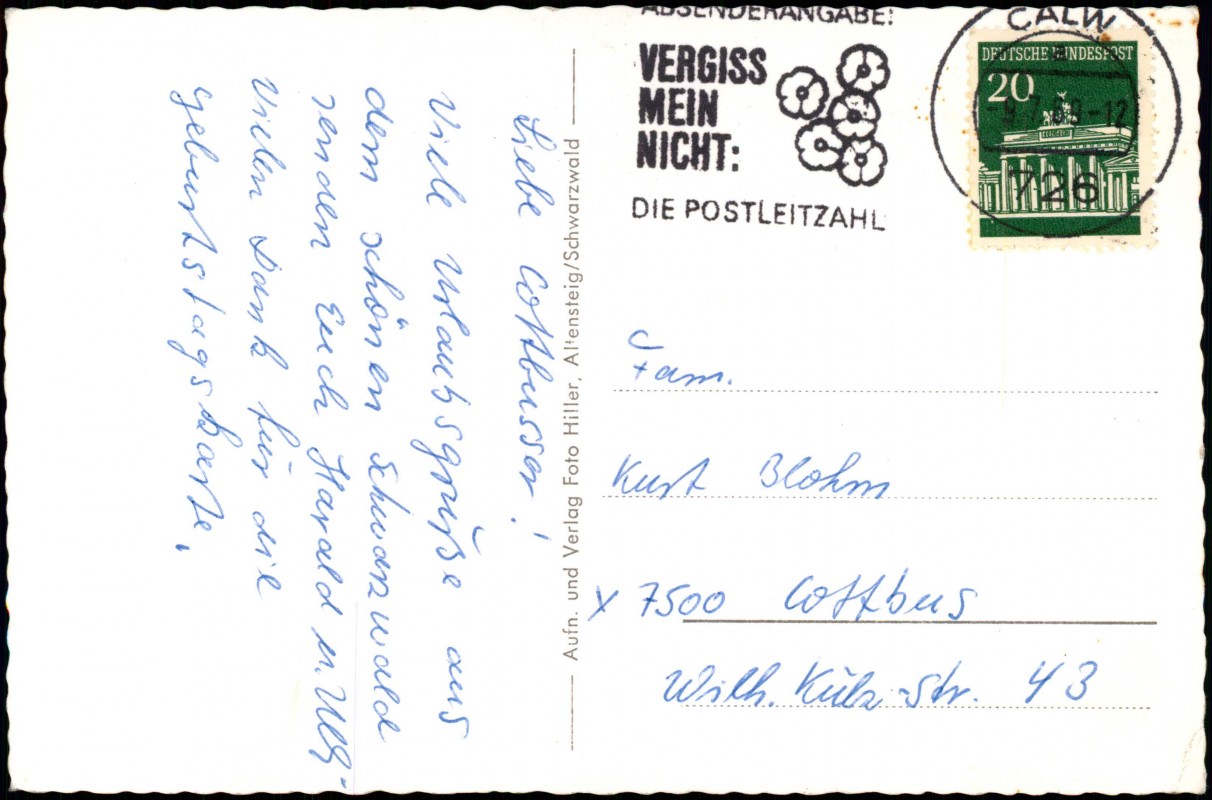 Liebe Cottbusser!
Viele Urlaubsgrüße aus
dem schönen Schwarzwald
senden Euch Harald u.
Vielen Dank für die
geburtstagskarte.
Aufn. und Verlag Foto Hiller, Altensteig/Schwarzwald
ABSENDERANGABE:
VERGISS
MEIN
NICHT:
DIE POSTLEITZAHL
CALW
-9.7.69-12
726
DEUTSCHE BUNDESPOST
20
Fam.
Kurt Blohm
x 7500 Cottbus
Wilh. Külz-Str. 43